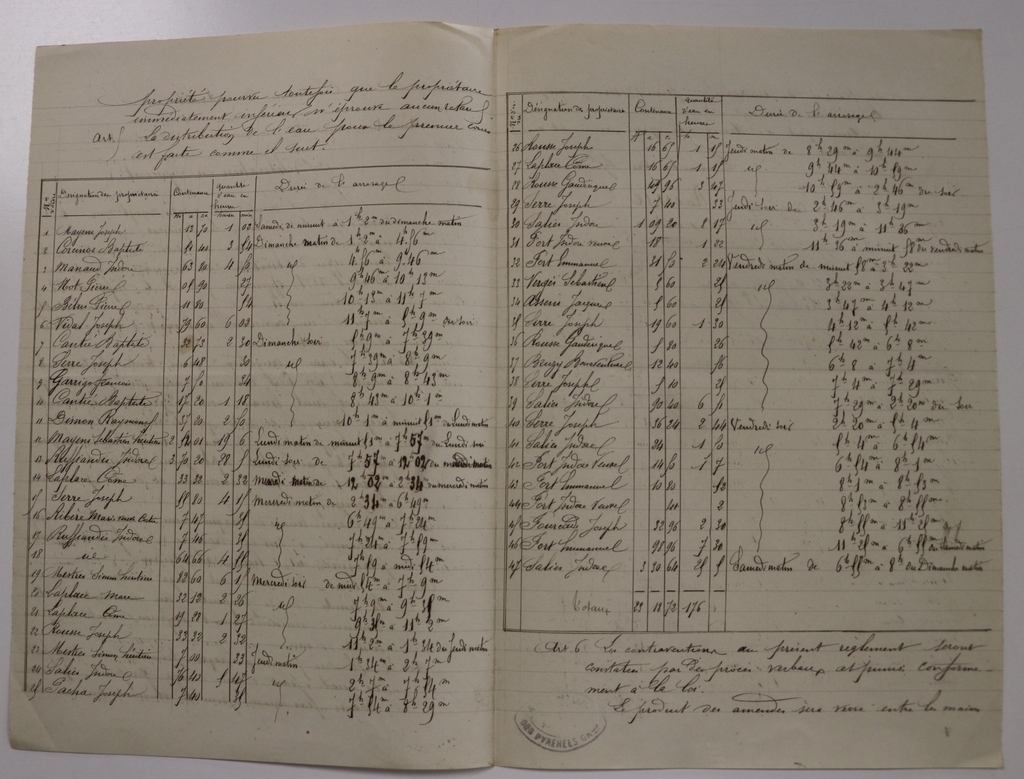 propriété pourvu toutefois que le propriétaire
immédiatement inférieur n'éprouve aucun retard
Art 5 La distribution de l'eau pour le premier
est faite comme il suit.
Nos d'ordre Désignation des propriétaires Contenance Quantité d'eau en heures Durée de l'arrosage
H a c heures min
1 Mayens Joseph 13 70 1 02 Samedi de minuit à 1h 2m du dimanche matin
2 Baptiste Dimanche matin de 1h 2m à 4h 56m
3 Manaud Isidore 63 20 4 50 id 4h 56m à 9h 46m
4 Not Pierre 27 9h 46m à 10h 13m
5 Pierre 11 80 54 10h 13m à 11h 7m
6 Vidal Joseph 79 60 6 02 11h 7m à 5h 9m du soir
7 Cantié Baptiste 32 73 2 30 Dimanche soir 5h 9m à 7h 39m
8 Serre Joseph 6 48 30 id 7h 39m à 8h 9m
9 Garrigo François 7 50 34 8h 9m à 8h 43m
10 Cantié Baptiste 17 20 1 18 8h 43m à 10h 1m
11 Dimon Raymond 37 20 2 50 10h 1m à minuit 51m du Lundi matin
12 Mayens Sébastien 2 01 19 6 Lundi matin de minuit 51m à 7h 57m du Lundi soir
13 Ruffiandis Isidore 3 70 20 28 5 Lundi soir de 7h 57m à 12h 02m du mardi matin
14 Laplace Côme 33 20 2 32 Mercredi matin de 12h 02m à 2h 34m du mercredi matin
15 Serre Joseph 55 80 4 15 Mercredi matin de 2h 34m à 6h 49m
16 Ribère 7 47 35 id 6h 49m à 7h 24m
17 Ruffiandis Isidore 7 40 35 7h 24m à 7h 59m
18 id 64 66 4 55 7h 59m à midi 54m
19 Mestres Simon 82 60 6 15 Mercredi soir de midi 54m à 7h 9m
20 Laplace Marc 32 12 2 26 id 7h 9m à 9h 35m
21 Laplace Côme 19 22 1 27 9h 35m à 11h 2m
22 Rousse Joseph 33 32 2 32 11h 2m à 1h 34m du Jeudi matin
23 Mestres Simon 7 00 33 Jeudi matin 1h 34m à 2h 7m
24 Salies Isidore 76 40 5 47 id 2h 7m à 7h 54m
25 Pacha Joseph 7 40 35 7h 54m à 8h 29m
Nos d'ordre Désignation des propriétaires Contenance Quantité d'eau en heures Durée de l'arrosage
H a c h m
26 Rousse Joseph 16 67 1 15 Jeudi matin de 8h 29m à 9h 44m
27 Laplace Côme 16 67 1 15 id 9h 44m à 10h 59m
28 Rousse Gaudérique 49 96 3 47 10h 59m à 2h 46m du soir
29 Serre Joseph 7 40 33 Jeudi soir de 2h 46m à 3h 19m
30 Salies Isidore 1 09 20 8 17 id 3h 19m à 11h 36m
31 Fort Isidore 18 1 22 11h 36m à minuit 58m du vendredi matin
32 Fort Emmanuel 31 2 24 Vendredi matin de minuit 58m à 3h 22m
33 Vergès Sébastien 5 60 25 id 3h 22m à 3h 47m
34 Jacques 5 60 25 3h 47m à 4h 12m
35 Serre Joseph 19 60 1 30 4h 12m à 5h 42m
36 Rousse Gaudérique 5 80 26 5h 42m à 6h 8m
37 Bonaventure 12 40 56 6h 8m à 7h 4m
38 Serre Joseph 5 10 25 7h 4m à 7h 29m
39 Salies Isidore 90 40 6 51 7h 29m à 2h 20m du soir
40 Serre Joseph 36 24 2 44 Vendredi soir 2h 20m à 5h 4m
41 Salies Isidore 24 1 50 id 5h 4m à 6h 54m
42 Fort Isidore 14 6 1 7 6h 54m à 8h 1m
43 Fort Emmanuel 10 80 52 8h 1m à 8h 53m
44 Fort Isidore 40 2 8h 53m à 8h 55m
45 Joseph 32 96 2 30 8h 55m à 11h 25m
46 Fort Emmanuel 98 96 7 30 11h 25m à 6h 55m du Samedi matin
47 Salies Isidore 3 30 64 25 5 Samedi matin de 6h 55m à 8h du Dimanche matin
Totaux 23 18 72 176
Art 6. Les contraventions au présent règlement seront
constatées par des procès verbaux et punies conformé-
ment à la loi.
Le produit des amendes sera versé entre les mains
DES PYRÉNÉES